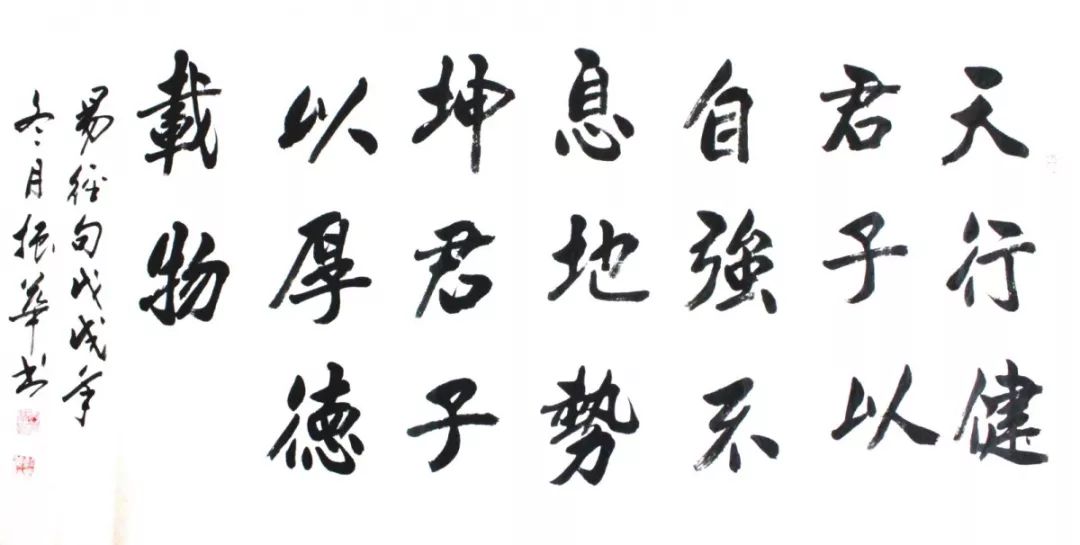 天行健
君子以
自強不
息地勢
坤君子
以厚德
載物
易經句戊戌年
冬月振華书